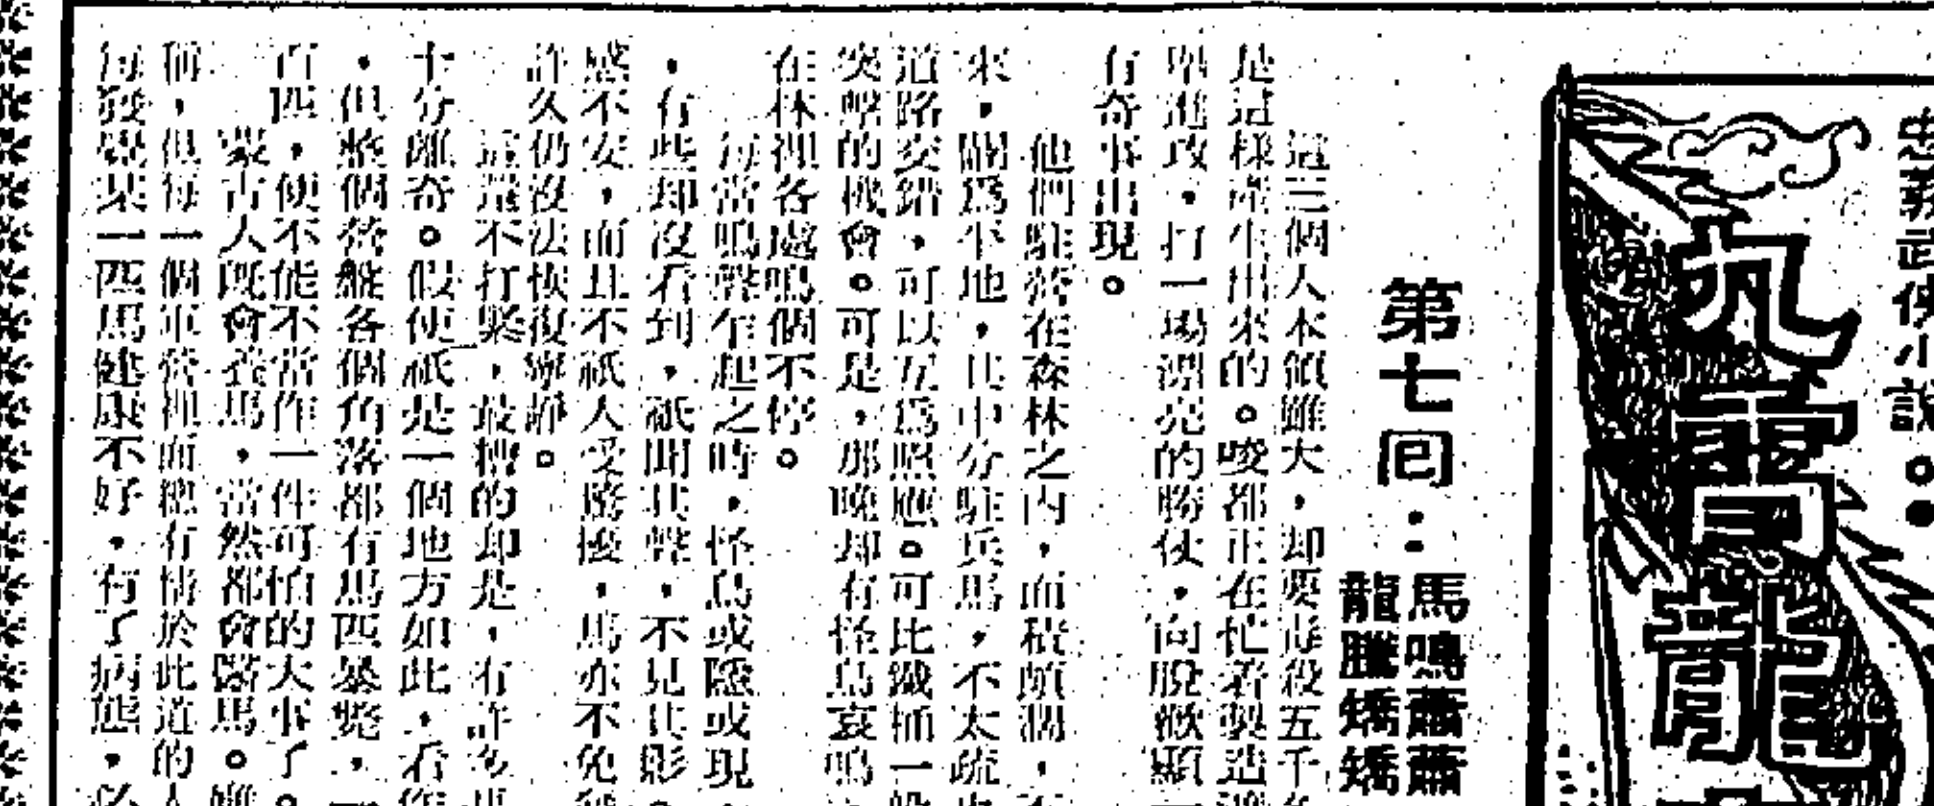 忠義武俠小說
九霄龍
第七回：
馬鳴蕭蕭
龍騰矯矯
這三個人本領雖大，却要毒殺五千
是這樣產生出來的。唆都正在忙着製造
舉進攻，打一場漂亮的勝仗，向脫歡顯
有奇事出現。
他們駐營在森林之內，面積頗濶，
來，闢爲平地，其中分駐兵馬，不太疏
道路交錯，可以互爲照應。可比鐵桶一般
突擊的機會。可是，那晚却有怪鳥哀鳴
在林裡各處鳴個不停。
每當鳴聲乍起之時，怪鳥或隱或現
，有些却沒看到，祇聞其聲，不見其影。
感不安，而且不祇人受騷擾，馬亦不免
許久仍沒法恢復寧靜。
這還不打緊，最糟的却是，有許多馬
十分離奇。假使祇是一個地方如此，看作
，但整個營盤各個角落都有馬匹暴斃，一
百匹，便不能不當作一件可怕的大事了。
蒙古人既會養馬，當然都會醫馬。雖
稱，但每一個軍營裡面總有精於此道的人
每發覺某一匹馬健康不好，有了病態，必